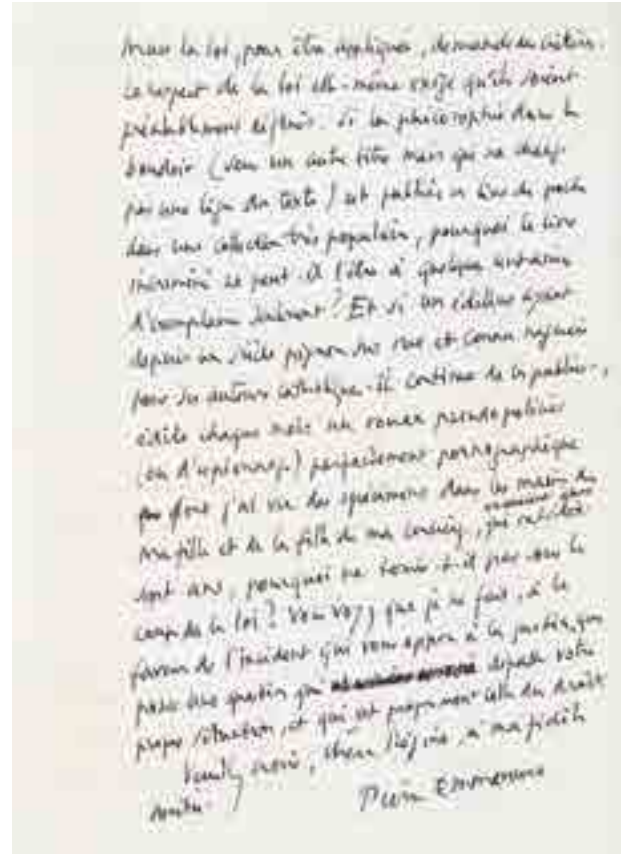 Mais la loi, pour être appliquée, demande des critères.
Le respect de la loi elle-même exige qu'ils soient
préalablement définis. Si la philosophie dans le
boudoir (sous un autre titre mais qui ne change
pas une ligne du texte) est publiée en livre de poche
dans une collection très populaire, pourquoi le livre
incriminé ne peut-il l'être à quelques
d'exemplaires seulement ? Et si un éditeur ayant
depuis un siècle pignon sur rue et connu
pour ses auteurs catholiques - il continue de les publier -,
édite chaque mois un roman pseudo policier
(ou d'espionnage) parfaitement pornographique
dont j'ai vu des specimens dans les mains de
ma fille et de la fille de ma concierge, qui
sept ans, pourquoi ne tombe-t-il pas sous le
coup de la loi ? Vous voyez que je ne fais, à la
faveur de l'incident qui vous oppose à la justice, que
poser une question qui dépasse votre
propre situation, et qui est proprement celle du droit.
Veuillez croire, chère Régine, à ma fidèle
amitié.
Pierre Emmanuel